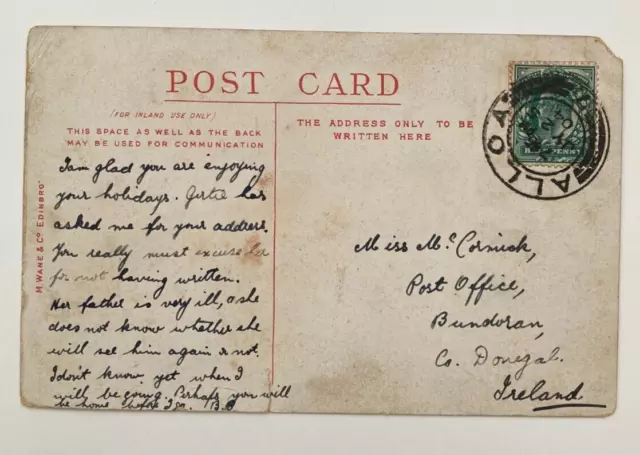 POST CARD
(FOR INLAND USE ONLY)
THIS SPACE AS WELL AS THE BACK
MAY BE USED FOR COMMUNICATION
THE ADDRESS ONLY TO BE
WRITTEN HERE
M. WANE & Co EDINBRO'
I am glad you are enjoying
your holidays. Gertie has
asked me for your address.
You really must excuse her
for not having written.
Her father is very ill, & she
does not know whether she
will see him again or not.
I don't know yet when I
will be going. Perhaps you will
be home before I go. B.
Miss Mc Cormick,
Post Office,
Bundoran,
Co. Donegal.
Ireland
ALLOA
HALFPENNY